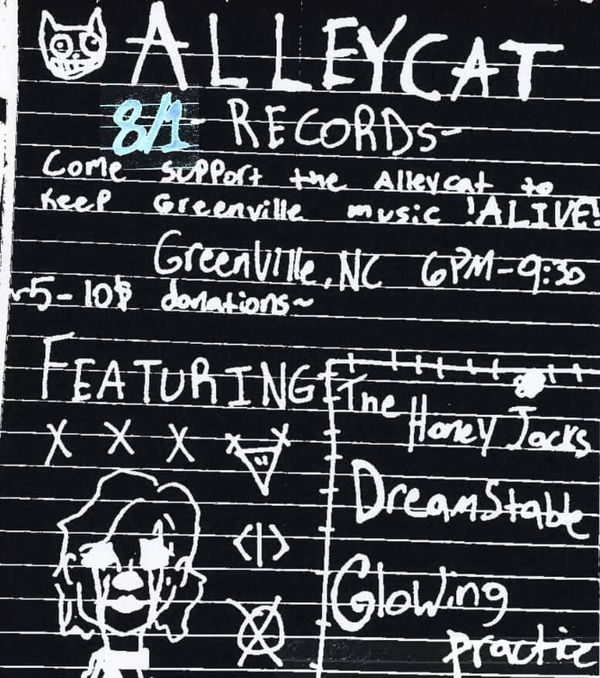 ALLEYCAT
8/1 - RECORDs-
Come support the Alleycat to
keep Greenville music !ALIVE!
Greenville, NC 6PM-9:30
~5-10$ donations~
FEATURING
The Honey Jacks
DreamStable
Glowing
practice